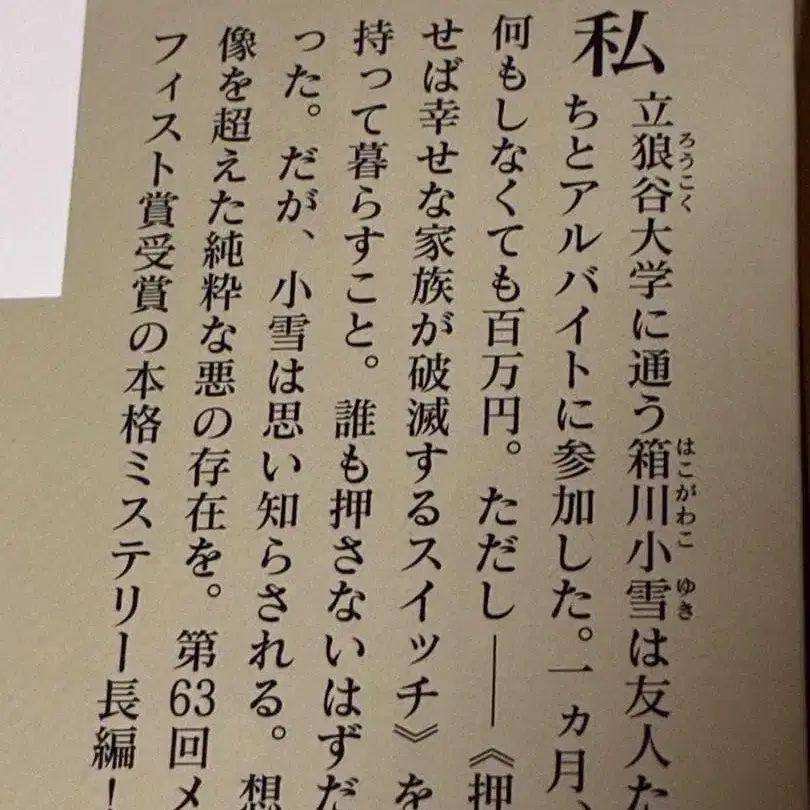 私立狼谷大学に通う箱川小雪は友人た
ちとアルバイトに参加した。一ヵ月、
何もしなくても百万円。ただし――《押
せば幸せな家族が破滅するスイッチ》を
持って暮らすこと。誰も押さないはずだ
った。だが、小雪は思い知らされる。想
像を超えた純粋な悪の存在を。第63回メ
フィスト賞受賞の本格ミステリー長編!
ろうこく
はこがわこ ゆき